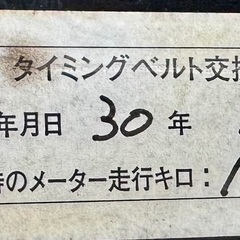 タイミングベルト交
年月日 30年
のメーター走行キロ: